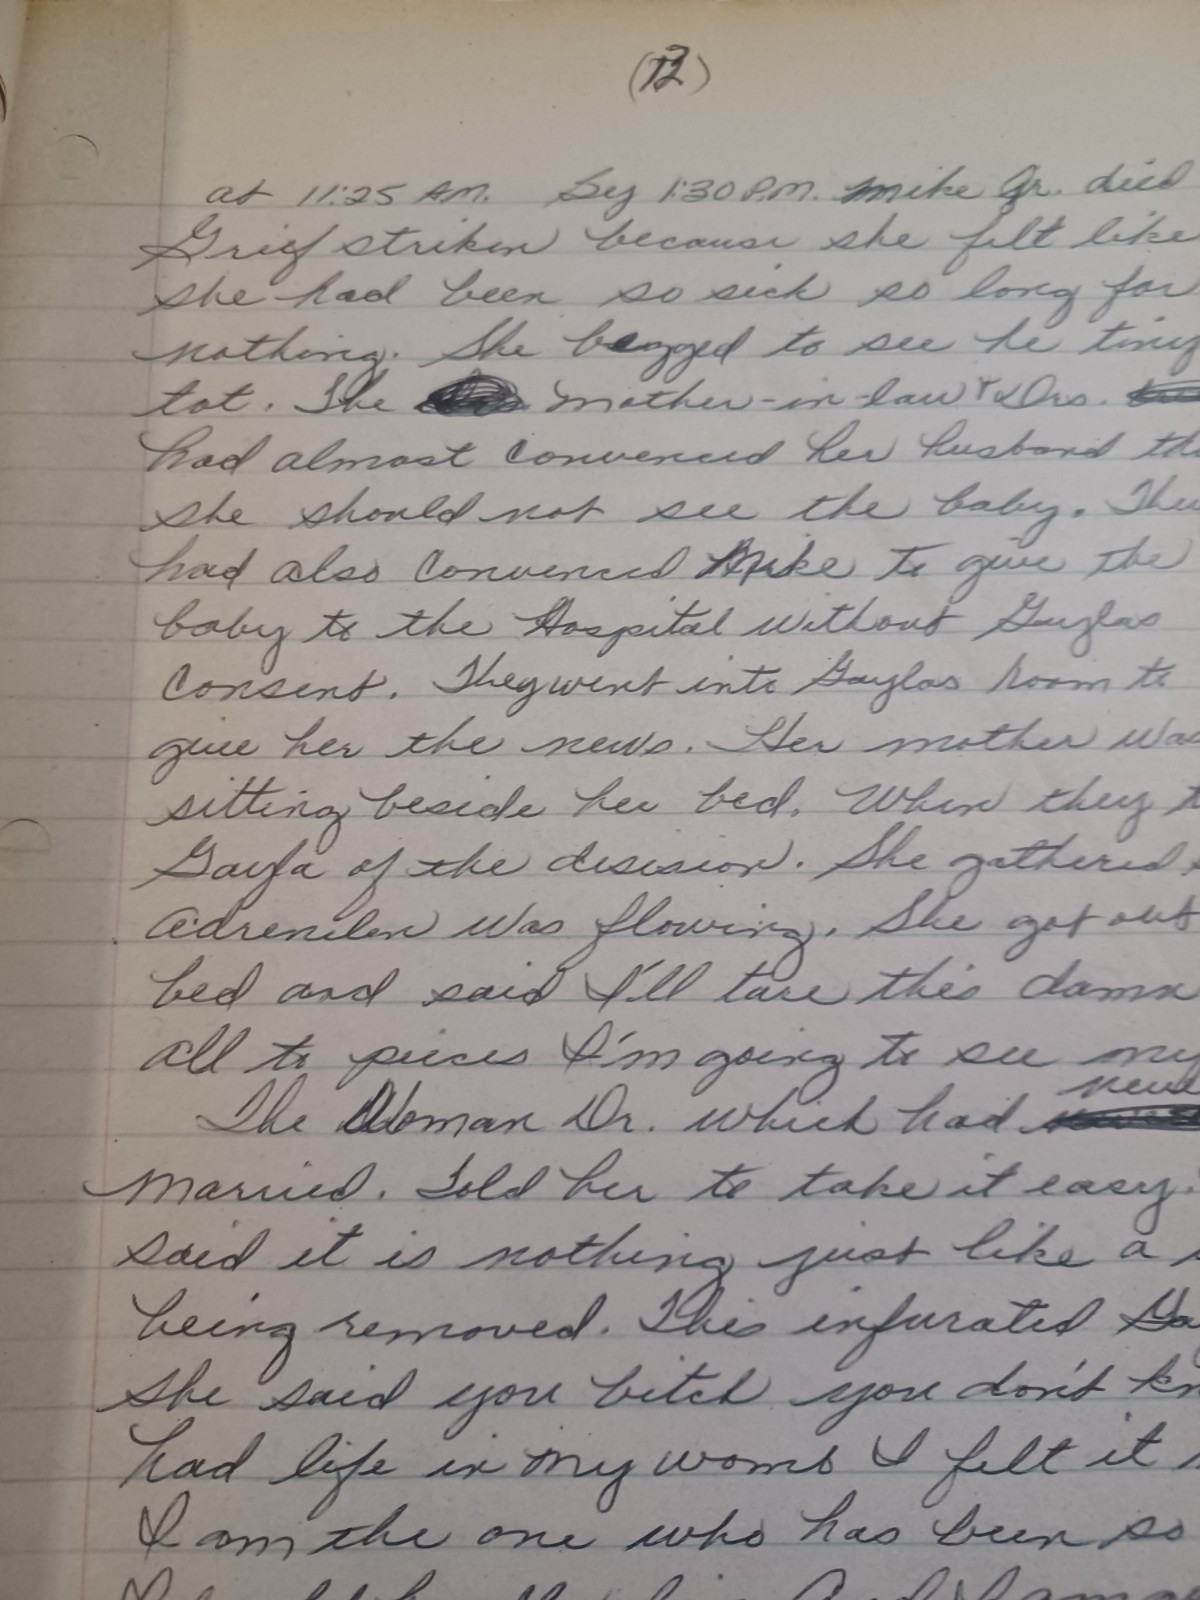 at 11:25 AM. By 1:30 P.M. Mike Jr. died
Grief striken because she felt like
she had been so sick so long for
nothing. She begged to see he tiny
tot. The mother-in-law & Drs.
had almost convenced her husband
she should not see the baby.
had also convenced Mike to give the
baby to the Hospital without Gaylas
consent. They went into Gaylas room to
give her the news. Her mother was
sitting beside her bed. When they
Gayla of the disision. She gathered
adrenilen was flowing. She got out
bed and said I'll tare this damn
all to pieces I'm going to see my
The Woman Dr. which had
married. Told her to take it easy.
said it is nothing just like a
being removed. This infurated
she said you bitch you don't
had life in my womb I felt it
I am the one who has been so